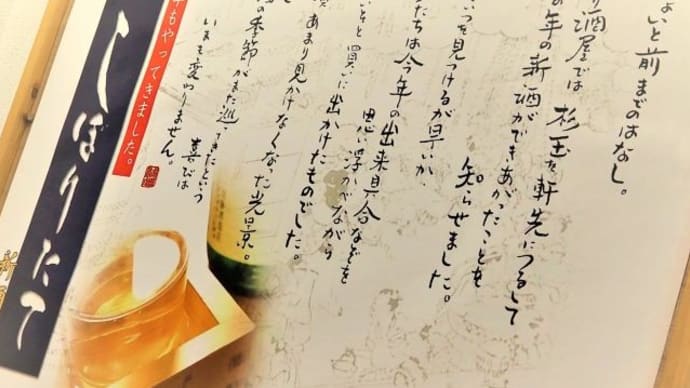 ょいと前までのはなし。
り酒屋では 杉玉を軒先につるして
の年の新酒ができあがったことを
知らせました。
いつを見つけるが早いか、
たちは今年の出来具合などを
思い浮かべながら
そと買いに出かけたものでした。
あまり見かけなくなった光景。
の季節がまた巡ってきたという
喜びは
いまも変わりません。
もやってきました。
しぼりたて
新